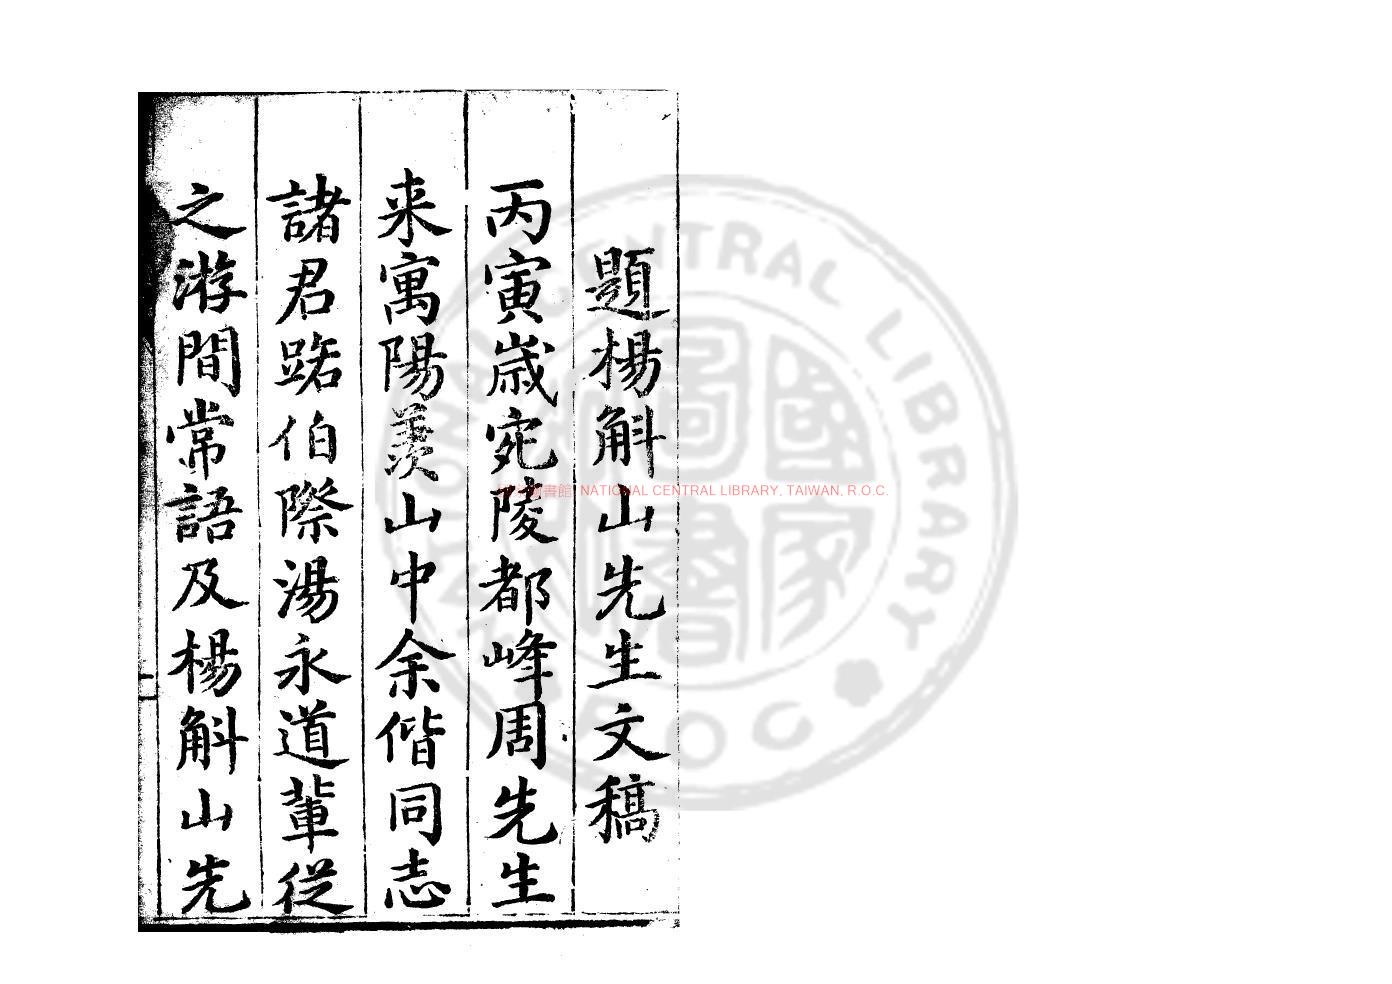 題楊斛山先生文稿
丙寅嵗宛陵都峰周先生
来寓陽羡山中余偕同志
諸君踞伯際湯永道輩從
之游間常語及楊斛山先
NATIONAL CENTRAL LIBRARY, TAIWAN, R.O.C.
CENTRAL LIBRARY